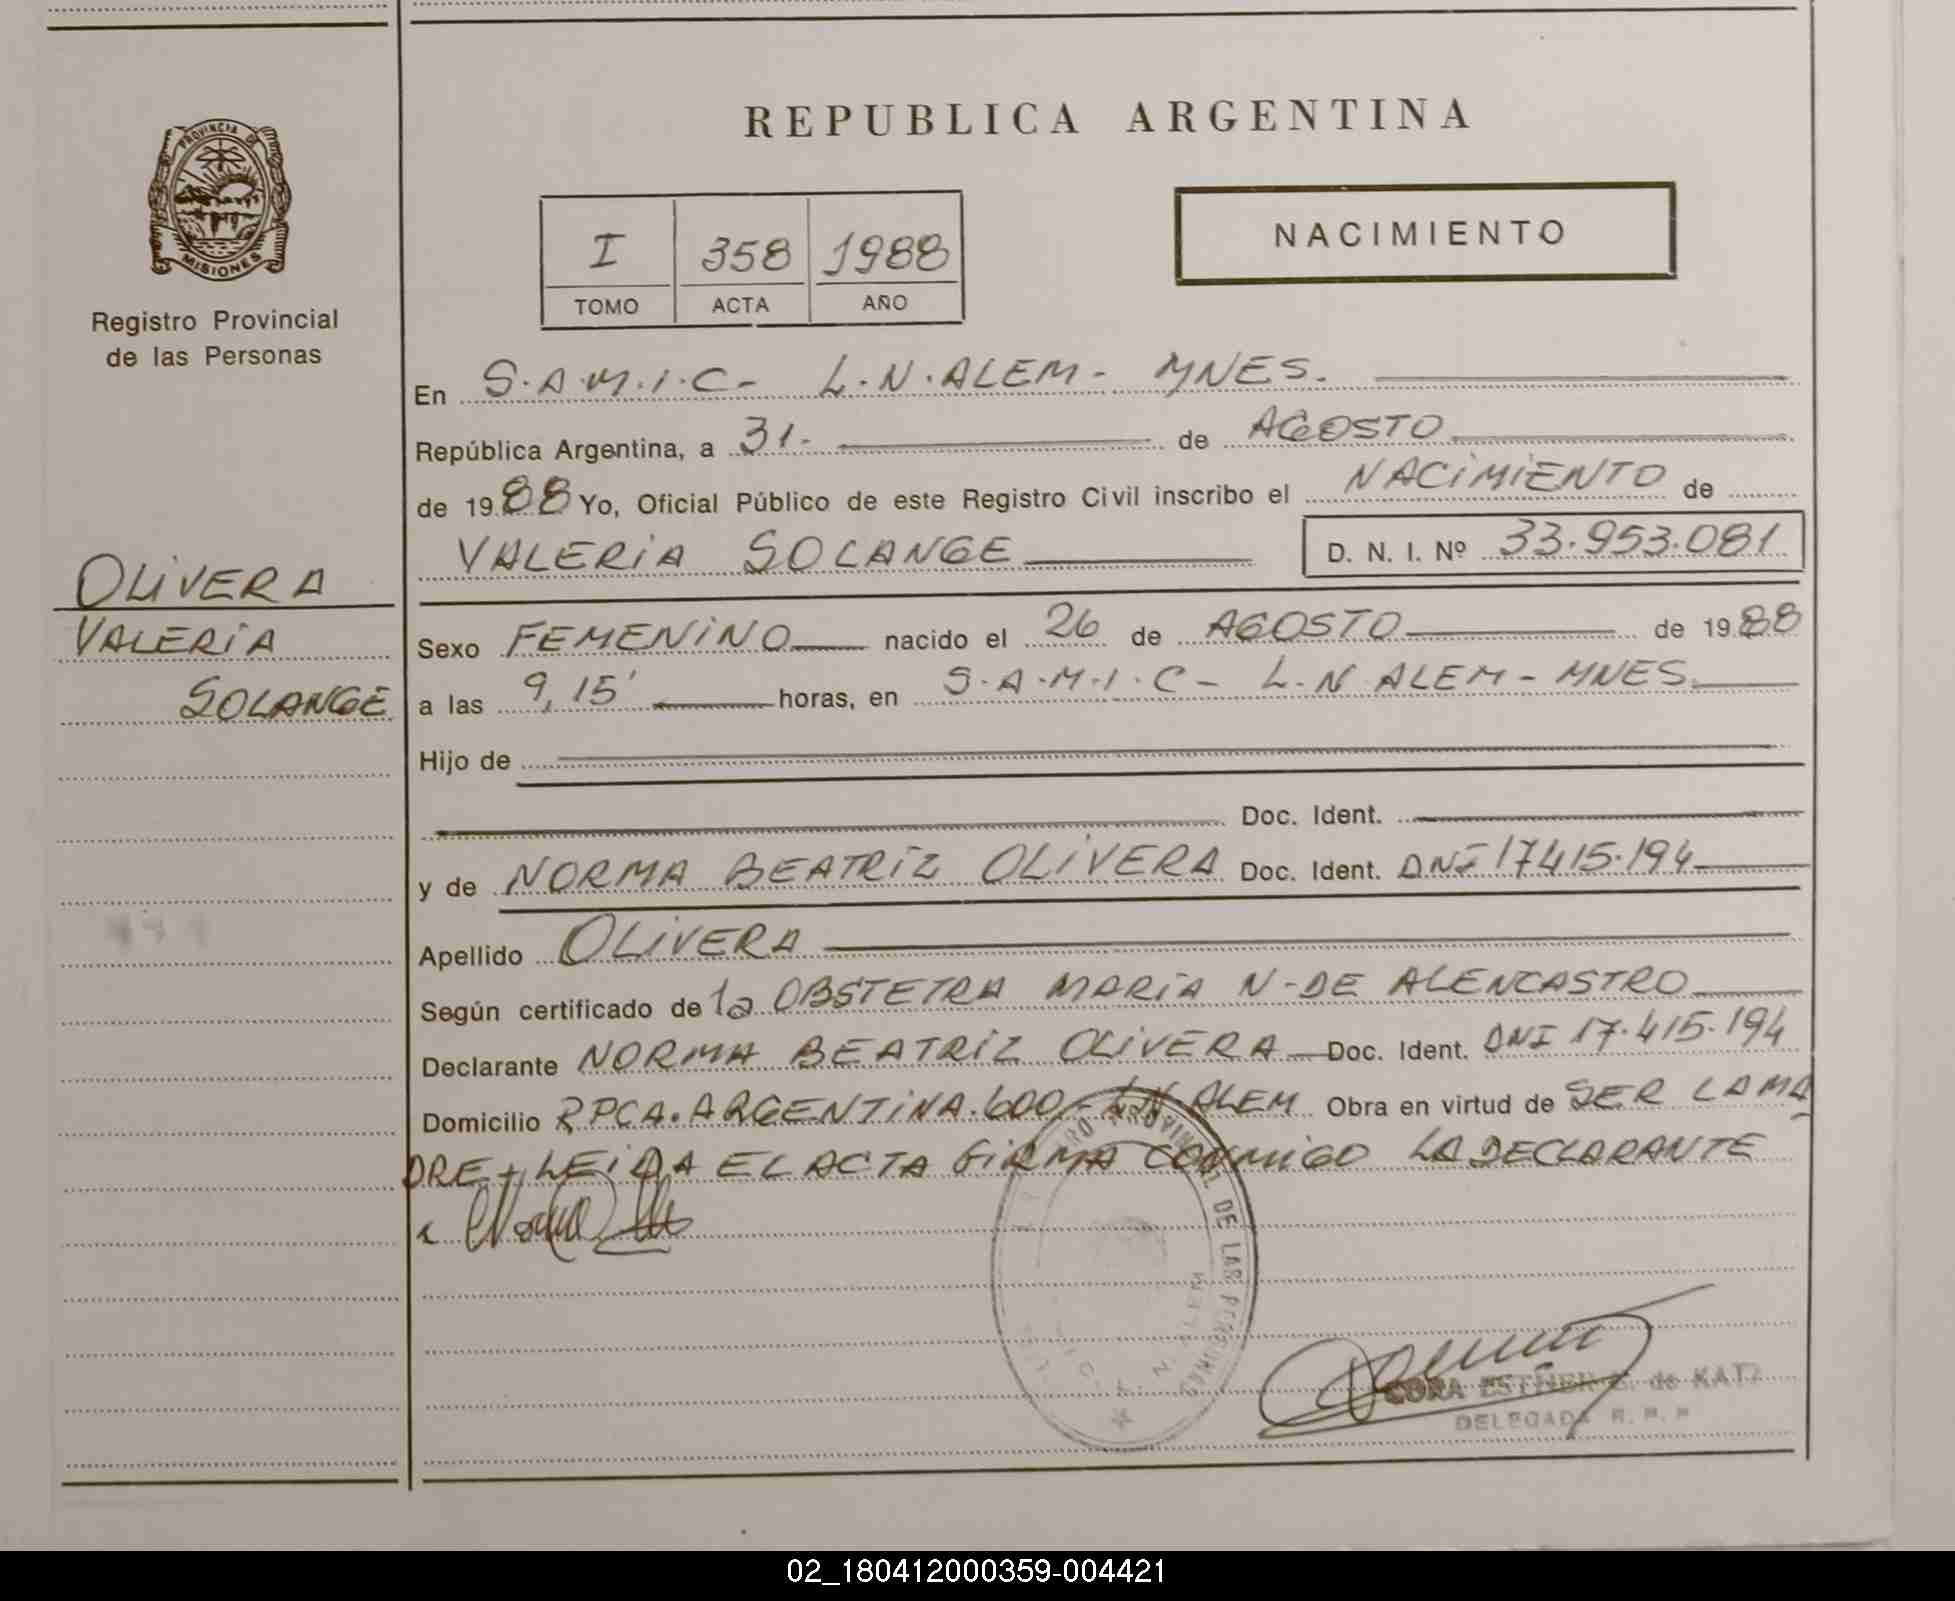 PROVINCIA DE
MISIONES
Registro Provincial
de las Personas
OLIVERA
VALERIA
SOLANGE
REPUBLICA ARGENTINA
I 358 1988
TOMO ACTA AÑO
NACIMIENTO
En S.A.M.I.C- L.N.ALEM- MNES.
República Argentina, a 31- de AGOSTO
de 1988 Yo, Oficial Público de este Registro Civil inscribo el NACIMIENTO de
VALERIA SOLANGE D. N. I. Nº 33.953.081
Sexo FEMENINO nacido el 26 de AGOSTO de 1988
a las 9,15' horas, en S.A.M.I.C- L.N ALEM- MNES.
Hijo de
Doc. Ident.
y de NORMA BEATRIZ OLIVERA Doc. Ident. DNI 17415.194
Apellido OLIVERA
Según certificado de la OBSTETRA MARIA N-DE ALENCASTRO
Declarante NORMA BEATRIZ OLIVERA Doc. Ident. DNI 17.415.194
Domicilio RPCA.ARGENTINA.600- L.N.ALEM Obra en virtud de SER LA MA
DRE- LEIDA EL ACTA FIRMA CONMIGO LA DECLARANTE
PROVINCIAL DE LAS PERSONAS
N. ALEM
CORA ESTHER de KATZ
DELEGADA R. P. P.
02_180412000359-004421